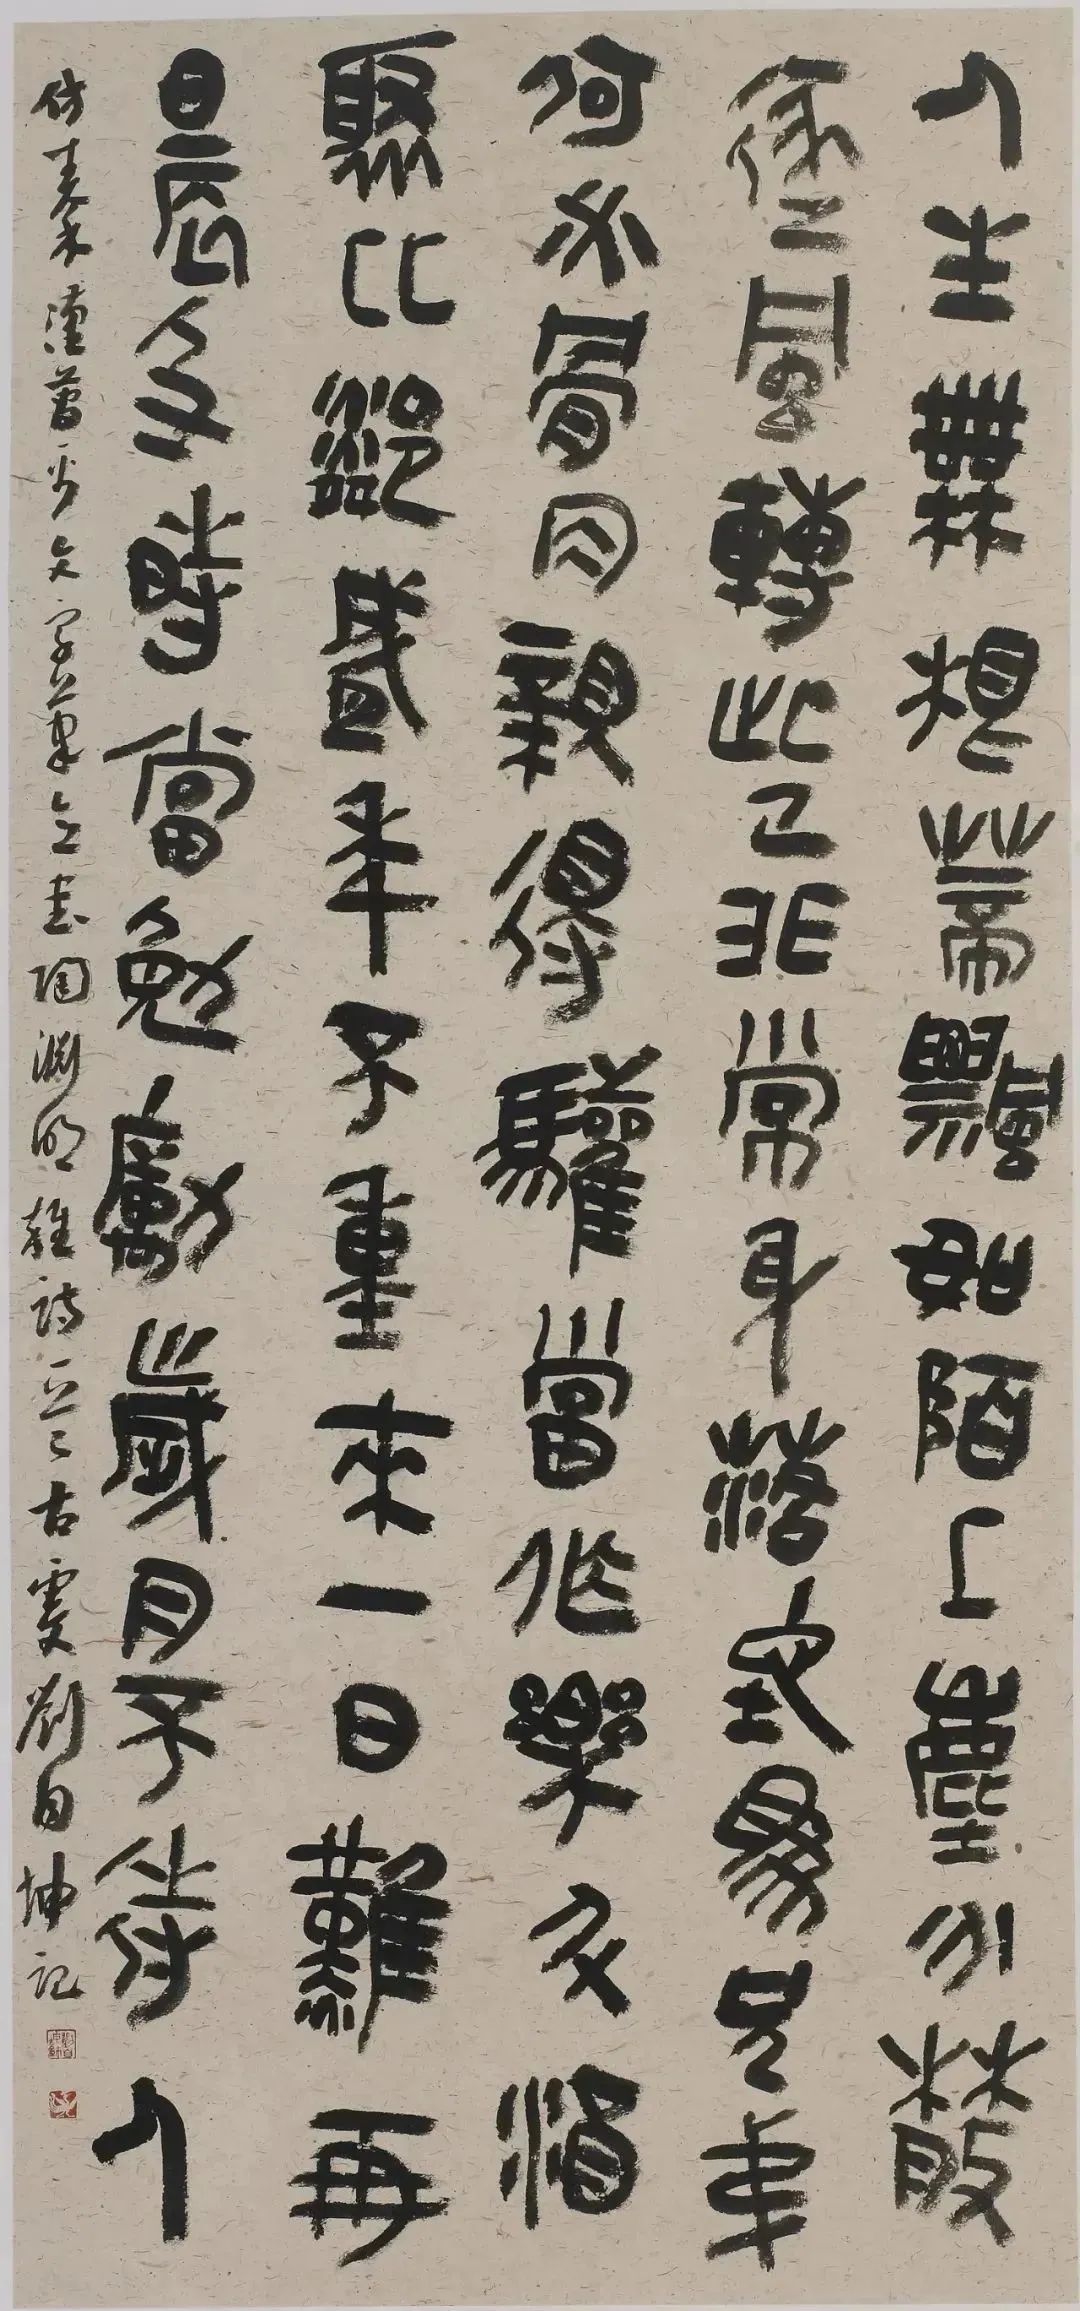 人生無根蒂飄如陌上塵分散
逐風轉此已非常身落地為兄弟
何必骨肉親得驩當作樂斗酒
聚比鄰盛年不重來一日難再
晨及時當勉勵歲月不待人
仿秦木牘文字筆意書陶淵明雜詩古雯劉自坤記